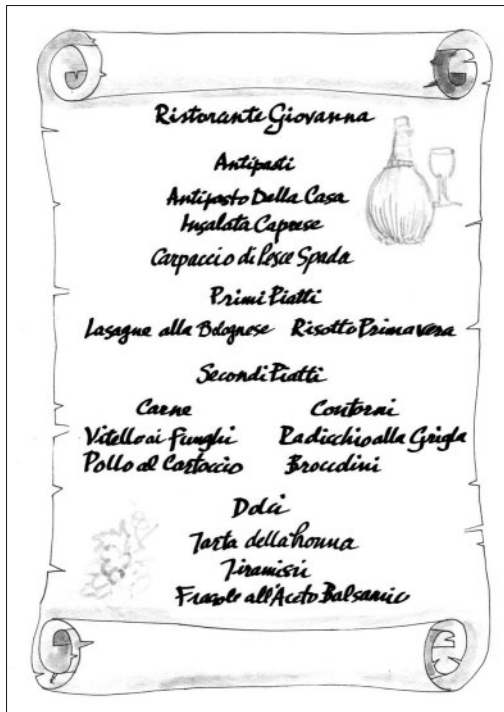 Ristorante Giovanna
Antipasti
Antipasto Della Casa
Insalata Caprese
Carpaccio di Pesce Spada
Primi Piatti
Lasagne alla Bolognese Risotto Primavera
Secondi Piatti
Carne Contorni
Vitello ai Funghi Radicchio alla Grigla
Pollo al Cartoccio Broccolini
Dolci
Torta della Nonna
Tiramisù
Fragole all'Aceto Balsamic